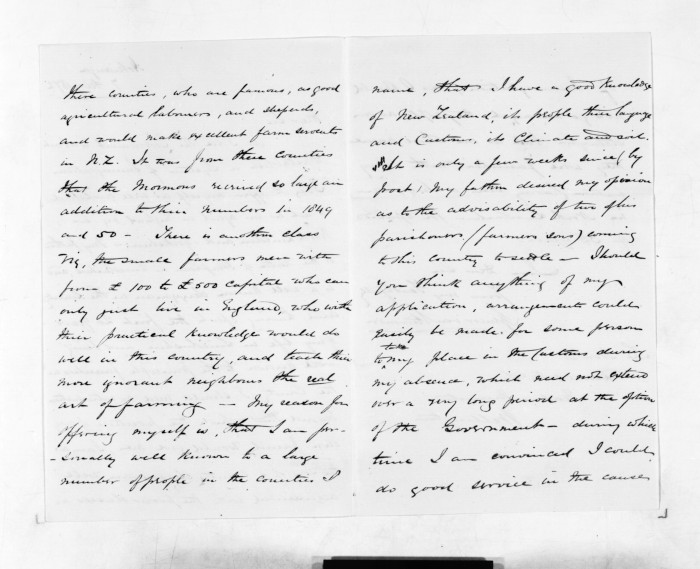 these counties, who are famous, as good
agricultural labourers, and sheperds,
and would make excellent farm servants
in N.Z. It was from these counties
that the Mormons recrived so large an
addition to their numbers in 1849
and 50 - There is another class
viz, the small farmers men with
from £ 100 to £ 500 capital who can
only just live in England, who with
their practical knowledge would do
well in this country, and teach their
more ignorant neighbours the real
art of farming — My reason for
offering myself is, that I am per-
-sonally well known to a large
number of people in the counties I
name, that I have a good knowledge
of New Zealand, its people their language
and Customs, its Climate and soil.
It is only a few weeks since (by
post) my father desired my opinion
as to the advisability of two of his
parishoners (farmers sons) coming
to this country to settle — Should
you think anything of my
application, arrangements could
easily be made for some person
to my place in the Customs during
my absence, which need not extend
over a very long period at the option
of the Government — during which
time I am convinced I could
do good service in the cause